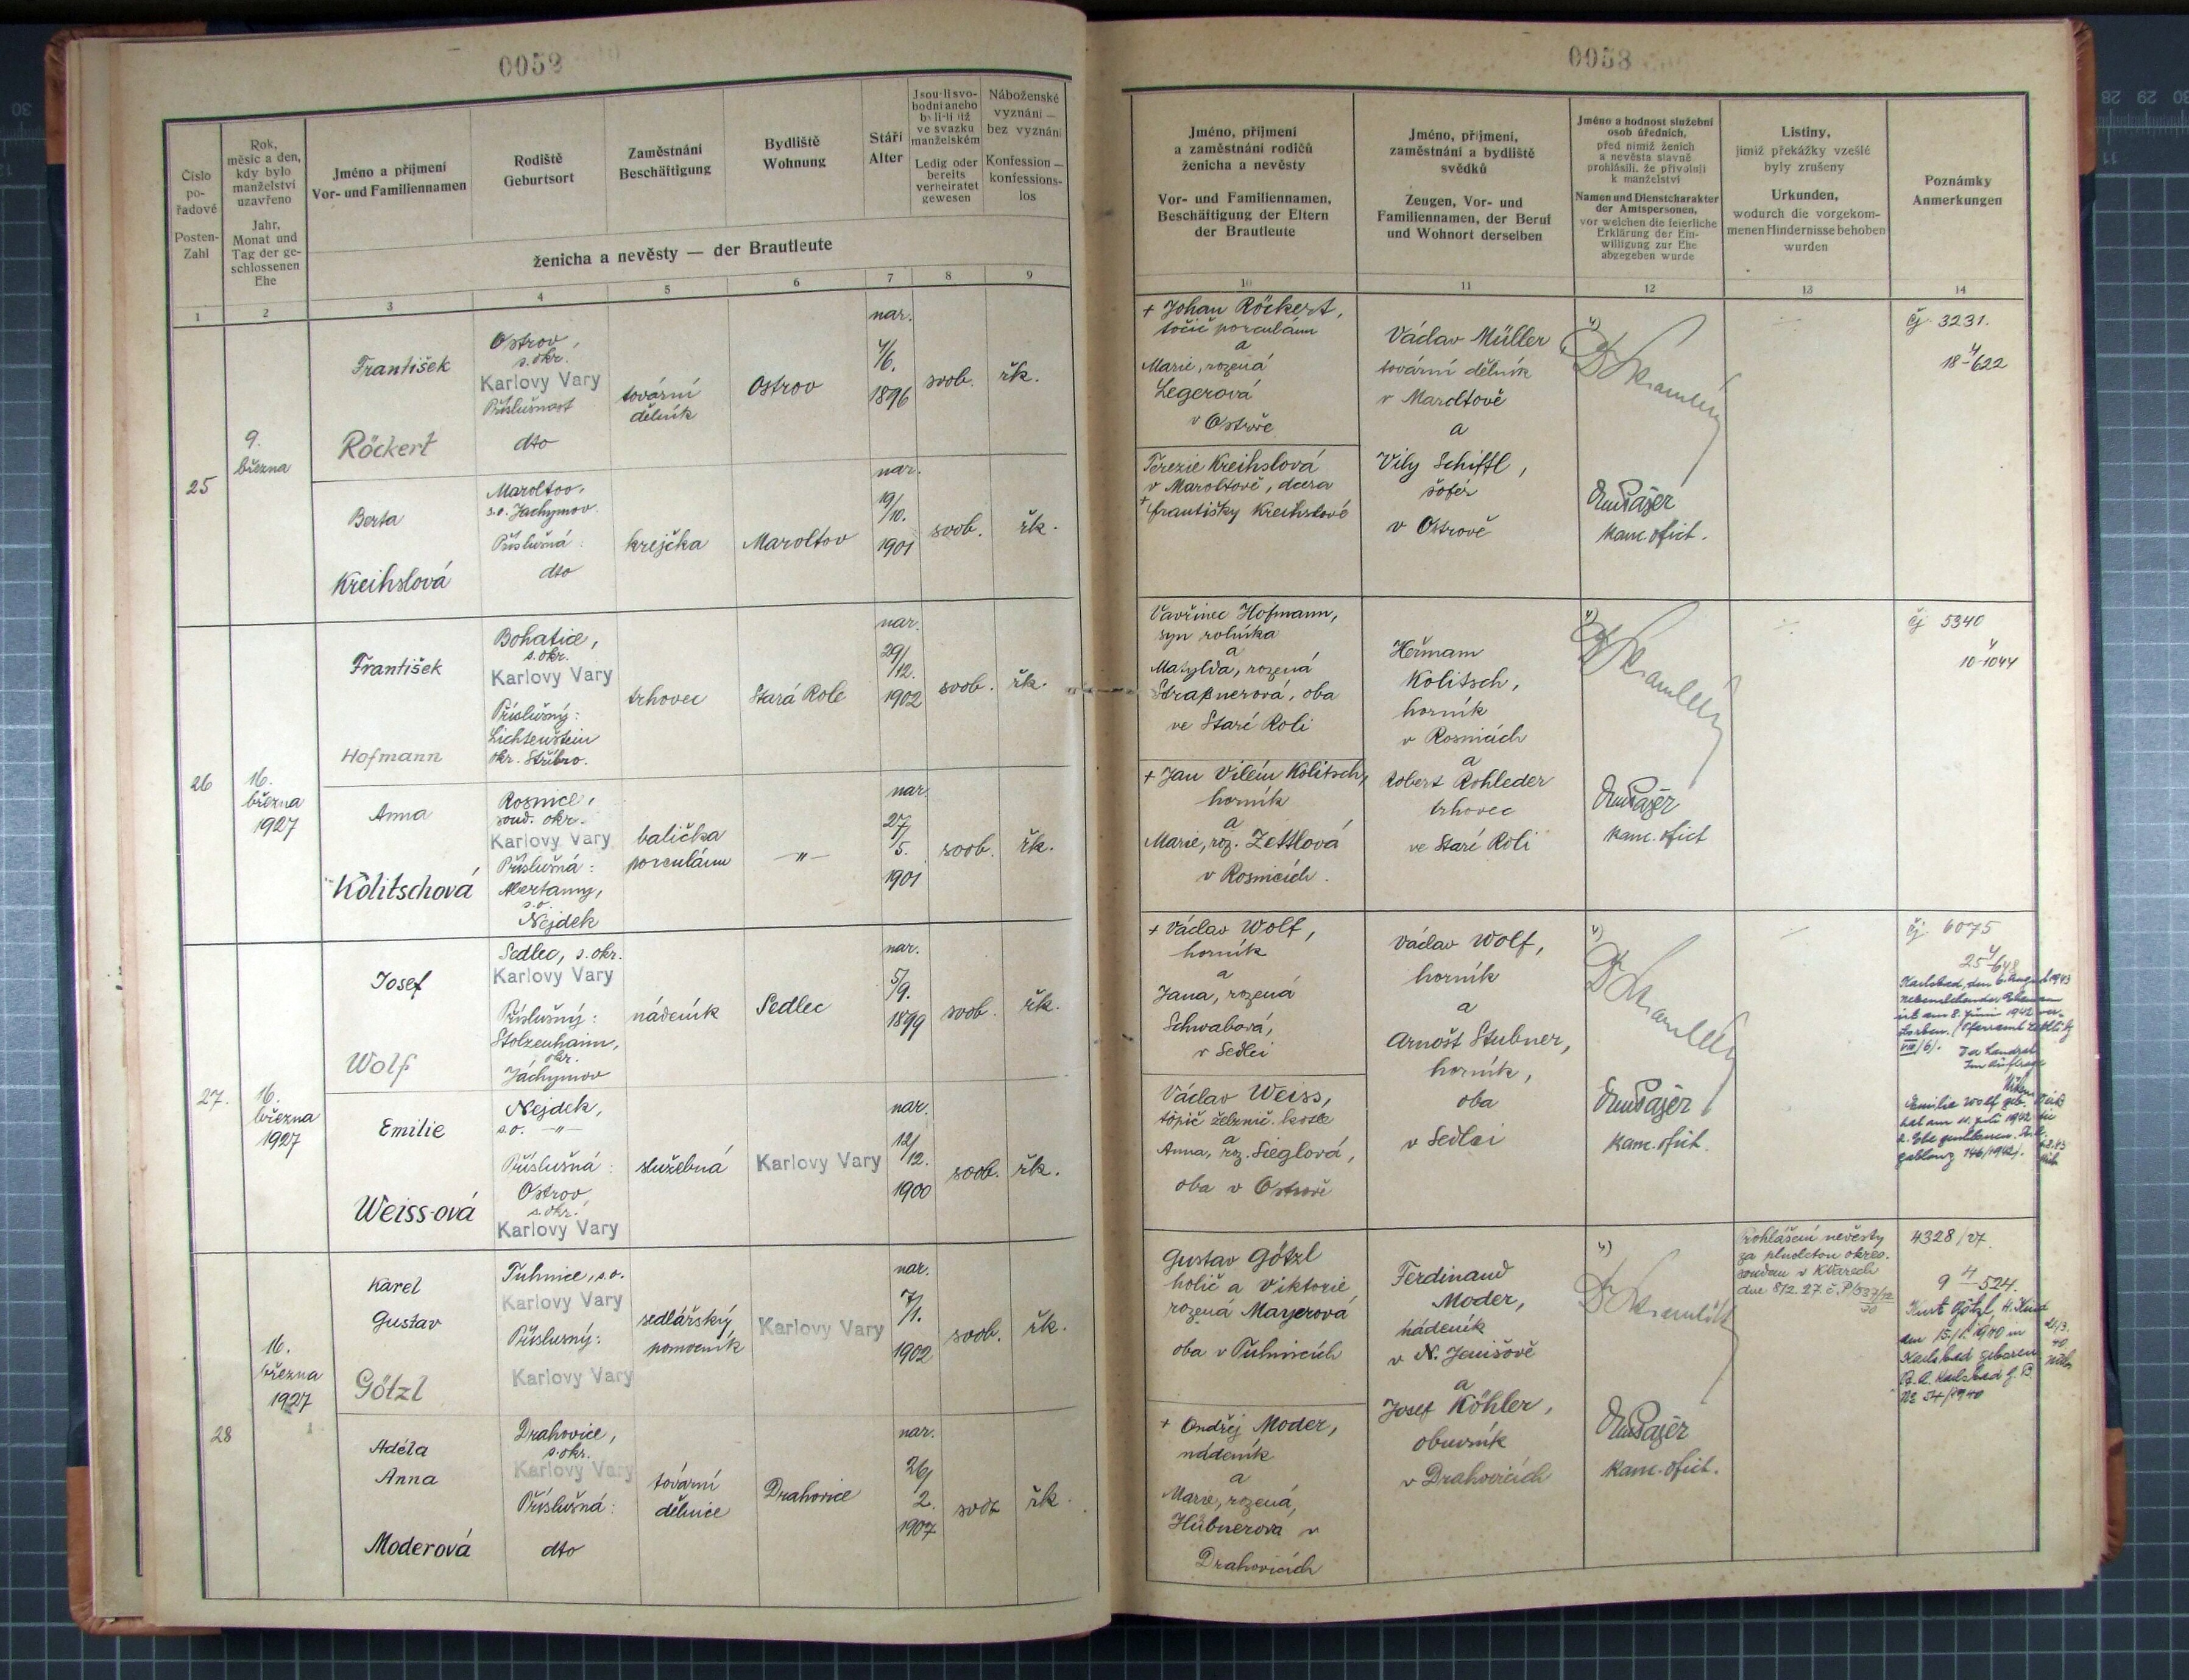 0053
Číslo po-řadové
Posten-Zahl
Rok, měsíc a den, kdy bylo manželství uzavřeno
Jahr, Monat und Tag der ge-schlossenen Ehe
Jméno a příjmení
Vor- und Familiennamen
Rodiště
Geburtsort
Zaměstnání
Beschäftigung
Bydliště
Wohnung
Stáří
Alter
Jsou-li svo-bodni aneb byli-li již ve svazku manželském
Ledig oder bereits verheiratet gewesen
Náboženské vyznání — bez vyznání
Konfession — konfessions-los
ženicha a nevěsty — der Brautleute
1 2 3 4 5 6 7 8 9
25
9.
března
František
Röckert
Ostrov,
s. okr.
Karlovy Vary
Příslušnost
dto
tovární
dělník
Ostrov
nar.
4/6.
1896
svob.
řk.
Berta
Kreihslová
Maroltov,
s.o. Jáchymov
Příslušná:
dto
krejčka
Maroltov
nar.
19/10.
1901
svob.
řk.
26
16.
března
1927
František
Hofmann
Bohatice,
s. okr.
Karlovy Vary
Příslušný:
Lichtenštein
okr. Stříbro.
trhovec
Stará Role
nar.
29/12.
1902
svob.
řk.
Anna
Kolitschová
Rosnice,
soud. okr.
Karlovy Vary
Příslušná:
Abertamy,
s.o.
Nejdek
balička
porculánu
—"—
nar.
27/5.
1901
svob.
řk.
27.
16.
března
1927
Josef
Wolf
Sedlec, s. okr.
Karlovy Vary
Příslušný:
Stolzenhaim,
okr.
Jáchymov
nádeník
Sedlec
nar.
5/9.
1899
svob.
řk.
Emilie
Weiss-ová
Nejdek,
s.o. —"—
Příslušná:
Ostrov,
s. okr.
Karlovy Vary
služebná
Karlovy Vary
nar.
12/12.
1900
svob.
řk.
28
16.
března
1927
Karel
Gustav
Götzl
Tuhnice, s.o.
Karlovy Vary
Příslusný:
Karlovy Vary
sedlářský
pomocník
Karlovy Vary
nar.
7/1.
1902
svob.
řk.
Adéla
Anna
Moderová
Drahovice,
s. okr.
Karlovy Vary
Příslušná:
dto
tovární
dělnice
Drahovice
nar.
26/2.
1907
svob
řk.
0053
Jméno, příjmení
a zaměstnání rodičů
ženicha a nevěsty
Vor- und Familiennamen,
Beschäftigung der Eltern
der Brautleute
Jméno, příjmení,
zaměstnání a bydliště
svědků
Zeugen, Vor- und
Familiennamen, der Beruf
und Wohnort derselben
Jméno a hodnost služební
osob úředních,
před nimiž ženich
a nevěsta slavně
prohlásili, že přivolují
k manželství
Namen und Dienstcharakter
der Amtspersonen,
vor welchen die feierliche
Erklärung der Ein-
willigung zur Ehe
abgegeben wurde
Listiny,
jimiž překážky vzešlé
byly zrušeny
Urkunden,
wodurch die vorgekom-
menen Hindernisse behoben
wurden
Poznámky
Anmerkungen
10 11 12 13 14
+ Johan Röckert,
točič porculánu
a
Marie, rozená
Legerová
v Ostrově
Terezie Kreihslová
v Maroltově, dcera
+ františky Kreihslové
Václav Müller
tovární dělník
v Maroltově
a
Vily Schiffl,
šofér
v Ostrově
kanc. ofict.
čj 3231.
18-4/622
Vavřinec Hofmann,
syn rolníka
a
Matylda, rozená
Straßnerová, oba
ve Staré Roli
+ Jan Vilém Kolitsch,
horník
a
Marie, roz. Zettlová
v Rosnicích.
Heřmam
Kolitsch,
horník
v Rosnicích
a
Robert Rohleder
trhovec
ve Staré Roli
kanc. ofict
čj 5340
10-4/1044
+ Václav Wolf,
horník
a
Jana, rozená
Schwabová,
v Sedlci
Václav Weiss,
topič želznič.
a
Anna, roz. Sieglová,
oba v Ostrově
Václav Wolf,
horník
a
Arnošt Stubner,
horník,
oba
v Sedlci
kanc. ofict.
čj 6075
25-4/648
Karlsbad, den 6. August 1943
am 8. Juni 1942 ver-
storben. (Pfarramt Zettlitz
VIII/6).
Im Auftrage
Emilie Wolf geb. Weiß
hat am 11. Juli 1942 die
2. Ehe geschlossen.
Gablonz 146/1942).
Gustav Götzl
holič a Viktorie
rozená Mayerová
oba v Tuhnicích
+ Ondřej Moder,
nádeník
a
Marie, rozená,
Hübnerová v
Drahovicích
Ferdinand
Moder,
nádeník
v N. Jenišově
a
Josef Köhler,
obuvník
v Drahovicích
kanc. ofict.
Prohlášení nevěsty
za plnoletou okres.
soudem v KVarech
dne 8/2 27.
4328/27.
9 4/524.
Kurt Götzl, H. Kind
am 15./1. 1940 in
Karlsbad geboren
St. A. Karlsbad G. B.
Nr. 54/1940